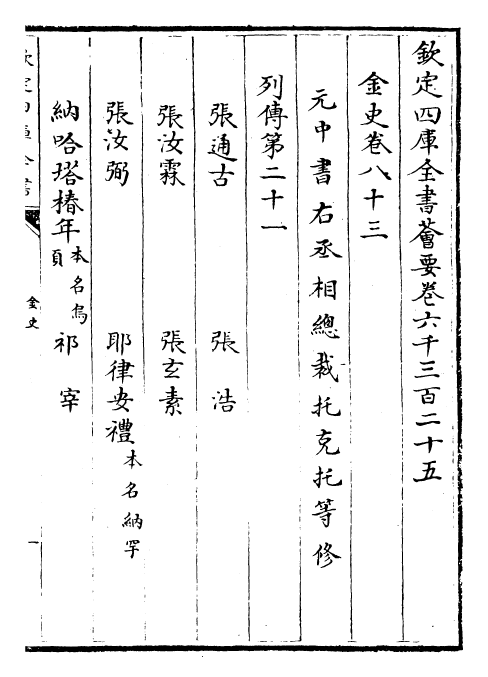 欽定四庫全書薈要卷六千三百二十五
金史卷八十三
元中書右丞相總裁托克托等修
列傳第二十一
張通古 張浩
張汝霖 張玄素
張汝弼 耶律安禮本名納罕
納哈塔椿年本名烏頁 祁宰
欽定四庫全書
金史
一